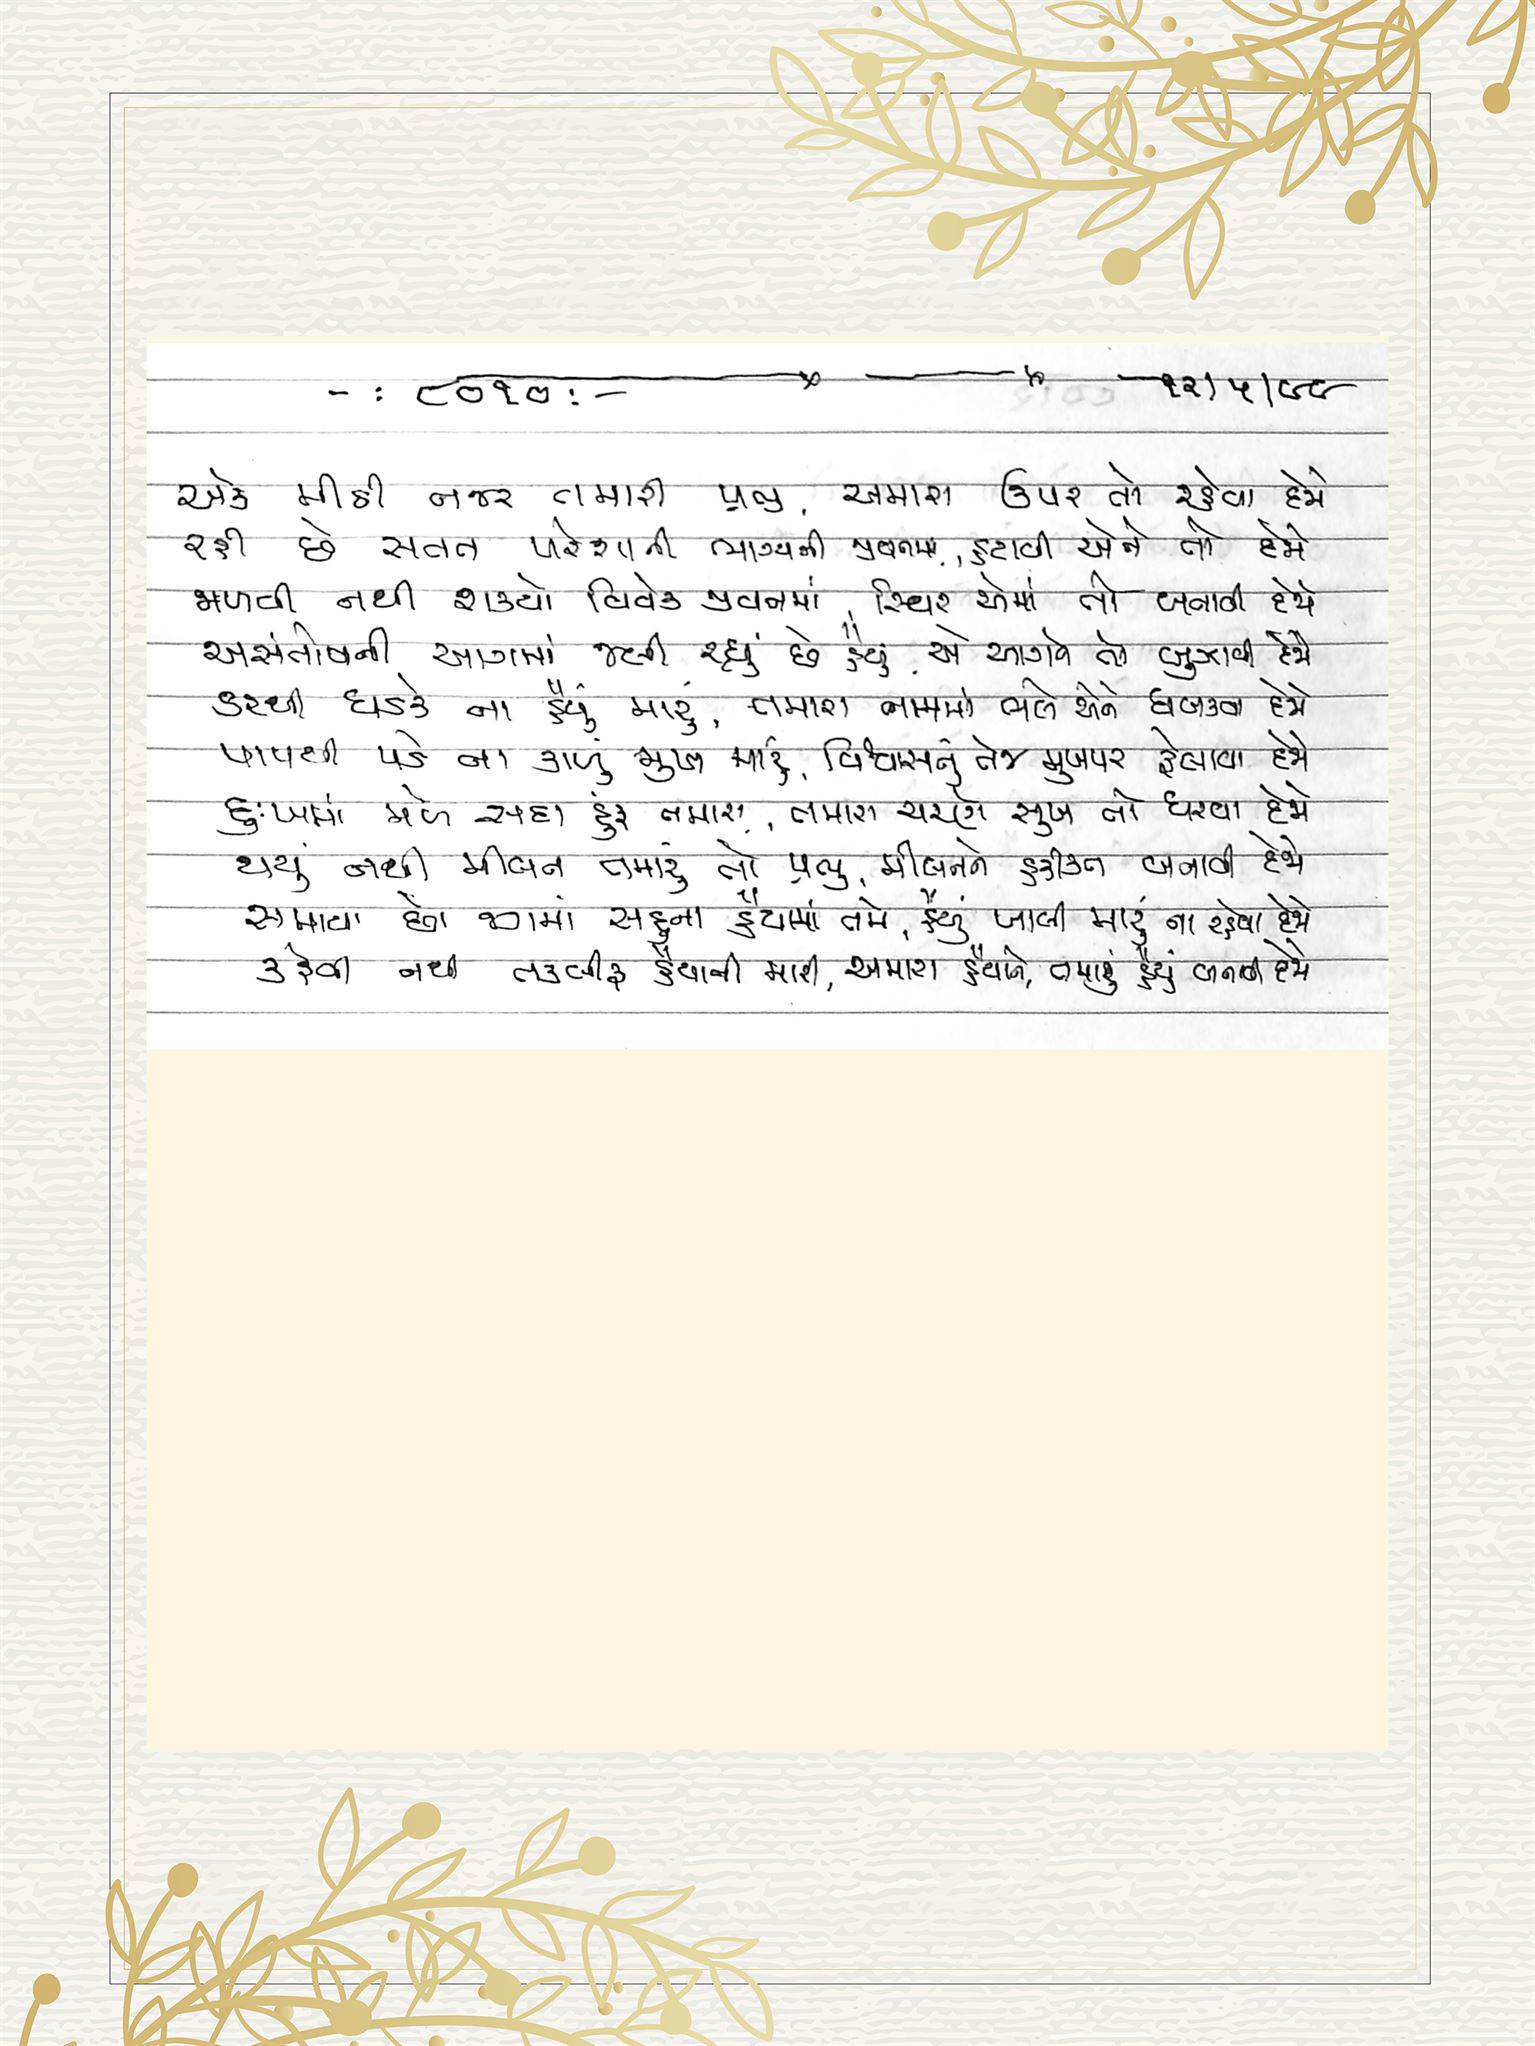 -: ૮૦૧૦ :- ૧૨/૫/૯૯
એક મીઠી નજર તમારી પ્રભુ, અમારા ઉપર તો રહેવા દેજે
રહી છે સતત પરેશાની ભાગ્યની જીવનમાં, હટાવી એને તો દેજે
મેળવી નથી શક્યો વિવેક જીવનમાં, સ્થિર એમાં તો બનાવી દેજે
અસંતોષની આગમાં જલી રહ્યું છે હૈયું, એ આગને તો બુઝાવી દેજે
ડરથી ધડકે ના હૈયું મારું, તમારા નામમાં ભલે એને ધબકવા દેજે
પાપથી પડે ના કાળું મુખ મારું, વિશ્વાસનું તેજ મુખપર ફેલાવા દેજે
દુઃખમાં મળે સદા હુંફ તમારી, તમારા ચરણે સુખ તો ધરવા દેજે
થયું નથી મીલન તમારું તો પ્રભુ, મીલનને હકીકત બનાવી દેજે
સમાવા છો જગમાં સહુના હૈયામાં તમે, હૈયું ખાલી મારું ના રહેવા દેજે
કહેવી નથી તકલીફ હૈયાની મારી, અમારા હૈયાને, તમારું હૈયું બનાવી દેજે